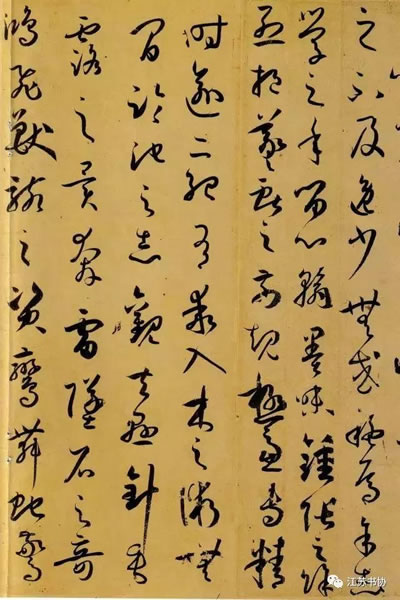 之不及逸少無或疑焉余志
學之年留心翰墨味鍾張之餘
烈挹羲獻之前規極慮專精
時逾二紀有乖入木之術無
間臨池之志觀夫懸針垂
露之異奔雷墜石之奇
鴻飛獸駭之資鸞舞蛇驚
江苏书协